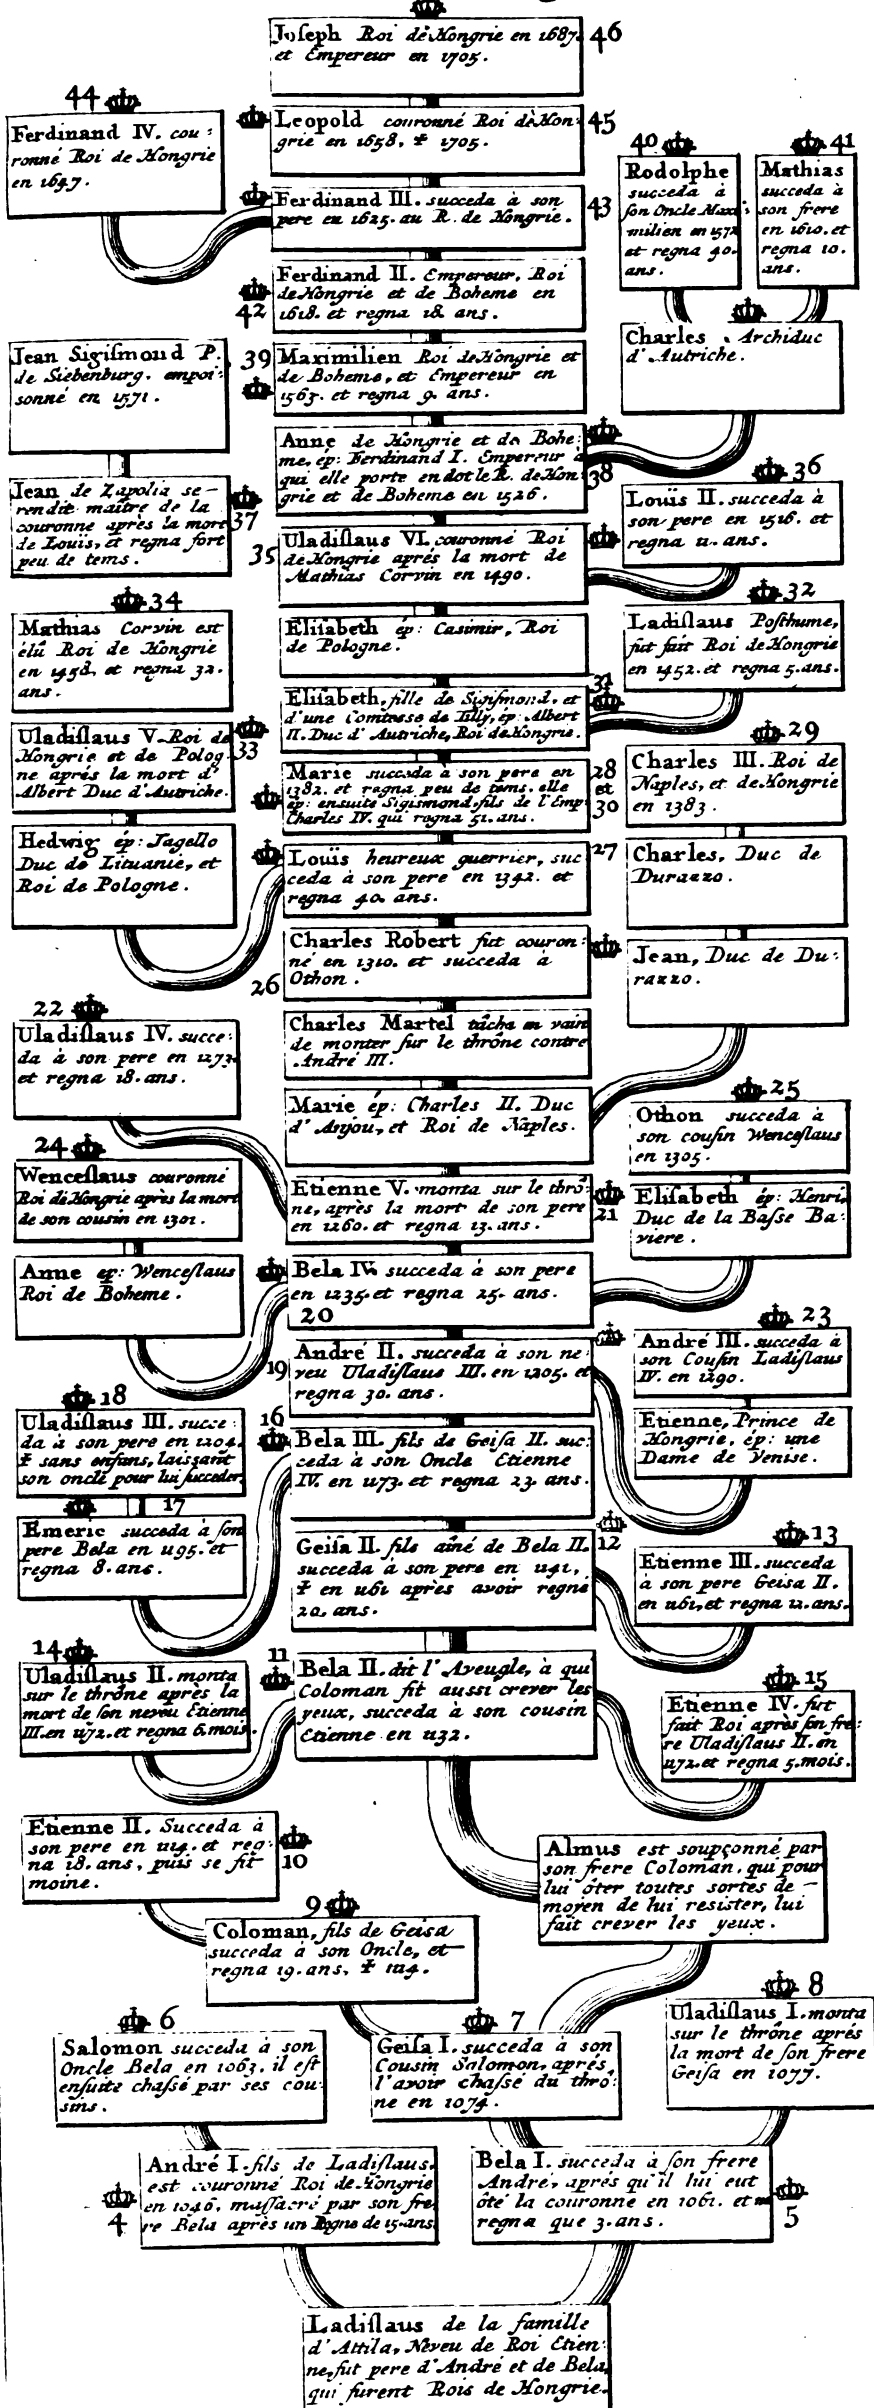 Joseph Roi de Hongrie en 1687.
et Empereur en 1705.
46
44
Ferdinand IV. cou:
ronné Roi de Hongrie
en 1647.
Leopold couronné Roi de Hon:
grie en 1658, ☨ 1705.
45
Ferdinand III. succeda à son
pere en 1625. au R. de Hongrie.
43
40
Rodolphe
succeda à
son Oncle Maxi:
milien en 1572
et regna 40.
ans.
41
Mathias
succeda à
son frere
en 1610. et
regna 10.
ans.
42
Ferdinand II. Empereur, Roi
de Hongrie et de Boheme en
1618. et regna 18. ans.
Charles, Archiduc
d'Autriche.
Jean Sigismond P.
de Siebenburg. empoi:
sonné en 1571.
39
Maximilien Roi de Hongrie et
de Boheme, et Empereur en
1563. et regna 9. ans.
Anne de Hongrie et de Bohe:
me, ép: Ferdinand I. Empereur à
qui elle porte en dot le R. de Hon:
grie et de Boheme en 1526.
38
Jean de Zapolia se
rendit maître de la
couronne après la mort
de Louïs, et regna fort
peu de tems.
37
36
Louïs II. succeda à
son pere en 1516. et
regna 11. ans.
35
Uladislaus VI. couronné Roi
de Hongrie aprés la mort de
Mathias Corvin en 1490.
34
Mathias Corvin est
élû Roi de Hongrie
en 1458. et regna 32.
ans.
Elisabeth ép: Casimir, Roi
de Pologne.
32
Ladislaus Posthume,
fut fait Roi de Hongrie
en 1452. et regna 5. ans.
31
Elisabeth, fille de Sigismond, et
d'une Comtesse de Tilly, ép: Albert
II. Duc d'Autriche, Roi de Hongrie.
Uladislaus V. Roi de
Hongrie et de Polog:
ne aprés la mort d'
Albert Duc d'Autriche.
33
Marie succeda à son pere en
1382. et regna peu de tems. elle
ép: ensuite Sigismond, fils de l'Emp:
Charles IV. qui regna 51. ans.
28
et
30
29
Charles III. Roi de
Naples, et de Hongrie
en 1383.
Hedwig ép: Jagello
Duc de Lituanie, et
Roi de Pologne.
Louïs heureux guerrier, suc:
ceda à son pere en 1342. et
regna 40. ans.
27
Charles, Duc de
Durazzo.
26
Charles Robert fut couron:
né en 1310. et succeda à
Othon.
Jean, Duc de Du:
razzo.
22
Uladislaus IV. succe:
da à son pere en 1273.
et regna 18. ans.
Charles Martel tâcha en vain
de monter sur le thrône contre
André III.
Marie ép: Charles II. Duc
d'Anjou, et Roi de Naples.
25
Othon succeda à
son cousin Wenceslaus
en 1305.
24
Wenceslaus couronné
Roi de Hongrie apres la mort
de son cousin en 1301.
Etienne V. monta sur le thrô:
ne, après la mort de son pere
en 1260. et regna 13. ans.
21
Elisabeth ép: Henri,
Duc de la Basse Ba:
viere.
Anne ep: Wenceslaus
Roi de Boheme.
Bela IV. succeda à son pere
en 1235. et regna 25. ans.
20
19
André II. succeda à son ne:
veu Uladislaus III. en 1205. et
regna 30. ans.
23
André III. succeda à
son Cousin Ladislaus
IV. en 1290.
18
Uladislaus III. succe:
da à son pere en 1204.
☨ sans enfans, laissant
son oncle pour lui succeder.
16
Bela III. fils de Geisa II. suc:
ceda à son Oncle Etienne
IV. en 1173. et regna 23. ans.
Etienne, Prince de
Hongrie, ép: une
Dame de Venise.
17
Emeric succeda à son
pere Bela en 1195. et
regna 8. ans.
Geisa II. fils aîné de Bela II.
succeda à son pere en 1141,
☨ en 1161 après avoir regné
20. ans.
12
13
Etienne III. succeda
à son pere Geisa II.
en 1161, et regna 12. ans.
14
Uladislaus II. monta
sur le thrône après la
mort de son neveu Etienne
III. en 1172. et regna 6. mois.
11
Bela II. dit l'Aveugle, à qui
Coloman fit aussi crever les
yeux, succeda à son cousin
Etienne en 1132.
15
Etienne IV. fut
fait Roi après son fre:
re Uladislaus II. en
1172. et regna 5. mois.
Etienne II. Succeda à
son pere en 1114. et reg:
na 18. ans, puis se fit
moine.
10
Almus est soupçonné par
son frere Coloman, qui pour
lui ôter toutes sortes de
moyen de lui resister, lui
fait crever les yeux.
9
Coloman, fils de Geisa
succeda à son Oncle, et
regna 19. ans, ☨ 1114.
6
Salomon succeda à son
Oncle Bela en 1063. il est
ensuite chassé par ses cou:
sins.
7
Geisa I. succeda à son
Cousin Salomon, aprés
l'avoir chassé du thrô:
ne en 1074.
8
Uladislaus I. monta
sur le thrône aprés
la mort de son frere
Geisa en 1077.
4
André I. fils de Ladislaus.
est couronné Roi de Hongrie
en 1046, massacré par son fre:
re Bela après un Regne de 15. ans
Bela I. succeda à son frere
André, aprés qu'il lui eut
ôté la couronne en 1061. et ne
regna que 3. ans.
5
Ladislaus de la famille
d'Attila, Neveu de Roi Etien:
ne, fut pere d'André et de Bela,
qui furent Rois de Hongrie.